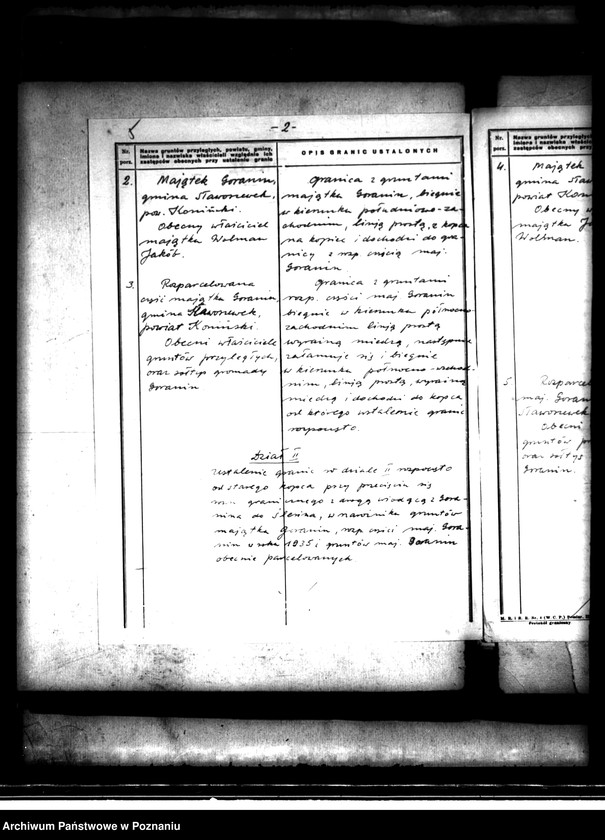 5
-2-
Nr. pors.
Nazwa gruntów przyległych, powiatu, gminy, imiona i nazwiska właścicieli względnie ich zastępców obecnych przy ustalaniu granic
OPIS GRANIC USTALONYCH
2.
Majątek Goranin,
gmina Sławoszewek,
pow. Koniński.
Obecny właściciel
majątku Wolman
Jakób.
Granica z gruntami
majątku Goranin, biegnie
w kierunku południowo-za-
chodnim, linją prostą, z kopca
na kopiec i dochodzi do gra-
nicy z rozp. częścią maj.
Goranin
3.
Rozparcelowana
część majątku Goranin,
gmina Sławoszewek,
powiat Koniński.
Obecni właściciele
gruntów przyległych,
oraz sołtys gromady
Goranin
Granica z gruntami
rozp. części maj. Goranin
biegnie w kierunku północno-
zachodnim linją prostą
wyraźną miedzą, następnie
załamuje się i biegnie
w kierunku północno-wschod-
nim, linją prostą, wyraźną
miedzą i dochodzi do kopca
od którego ustalenie granic
rozpoczęto.
Dział II
Ustalenie granic w dziale II rozpoczęto
od starego kopca przy przecięciu się
granicznego z drogą wiodącą z Gora-
nina do Ślesina, w narożniku gruntów
majątku Goranin, rozp. części maj. Gora-
nin w roku 1935 i gruntów maj. Goranin
obecnie parcelowanych
Nr. pors.
Nazwa gruntów przyległych
imiona i nazwiska właścicieli
zastępców obecnych przy
4.
Majątek
gmina Sław
powiat Kon
Obecny w
majątku Ja
Wolman.
5.
Rozparcel
maj. Goran
Sławoszewek
Obecni
gruntów p
oraz sołtys
Goranin.
Protokół graniczny
Archiwum Państwowe w Poznaniu